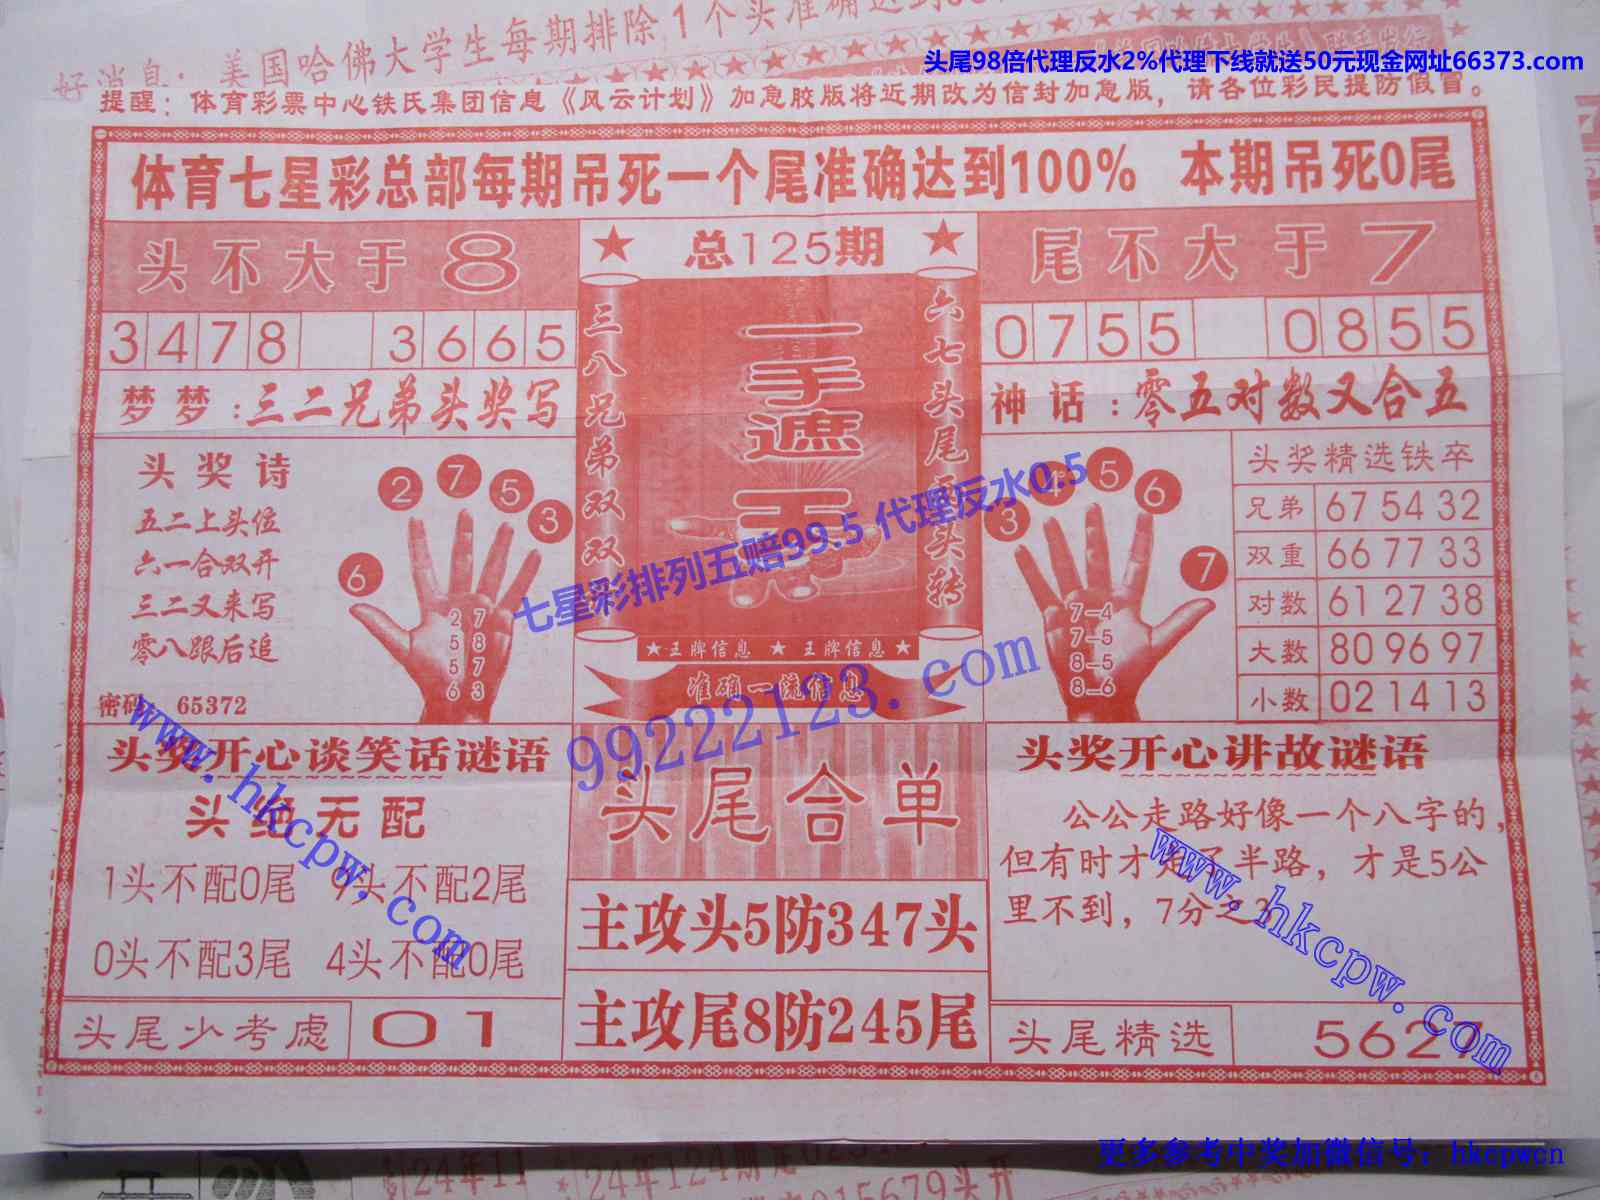 好消息：美国哈佛大学生每期排除1个头准确达到
头尾98倍代理反水2%代理下线就送50元现金网址66373.com
提醒：体育彩票中心铁氏集团信息《风云计划》加急胶版将近期改为信封加急版，请各位彩民提防假冒。
体育七星彩总部每期吊死一个尾准确达到100% 本期吊死0尾
头不大于8
总125期
尾不大于7
3478 3665
0755 0855
三八兄弟双双
一手遮天
六七头尾 头转
梦梦：三二兄弟头奖写
神话：零五对数又合五
头奖诗
五二上头位
六一合双开
三二又来写
零八跟后追
密码 65372
6 2 7 5 3
2 7
5 8
5 7
6 3
七星彩排列五赔99.5 代理反水0.5
★王牌信息 ★ 王牌信息★
准确一流信息
99222123.com
3 4 5 6 7
7-4
7-5
8-5
8-6
头奖精选铁卒
兄弟 67 54 32
双重 66 77 33
对数 61 27 38
大数 80 96 97
小数 02 14 13
www.hkcpw.com
头奖开心谈笑话谜语
头绝无配
1头不配0尾 头不配2尾
0头不配3尾 4头不配0尾
头尾少考虑 01
头尾合单
主攻头5防347头
主攻尾8防245尾
头奖开心讲故谜语
公公走路好像一个八字的，
但有时才走了半路，才是5公
里不到，7分之3
www.hkcpw.com
头尾精选 5627
更多参考中奖加微信号：hkcpwcn
24年11
24年124期
015679头开